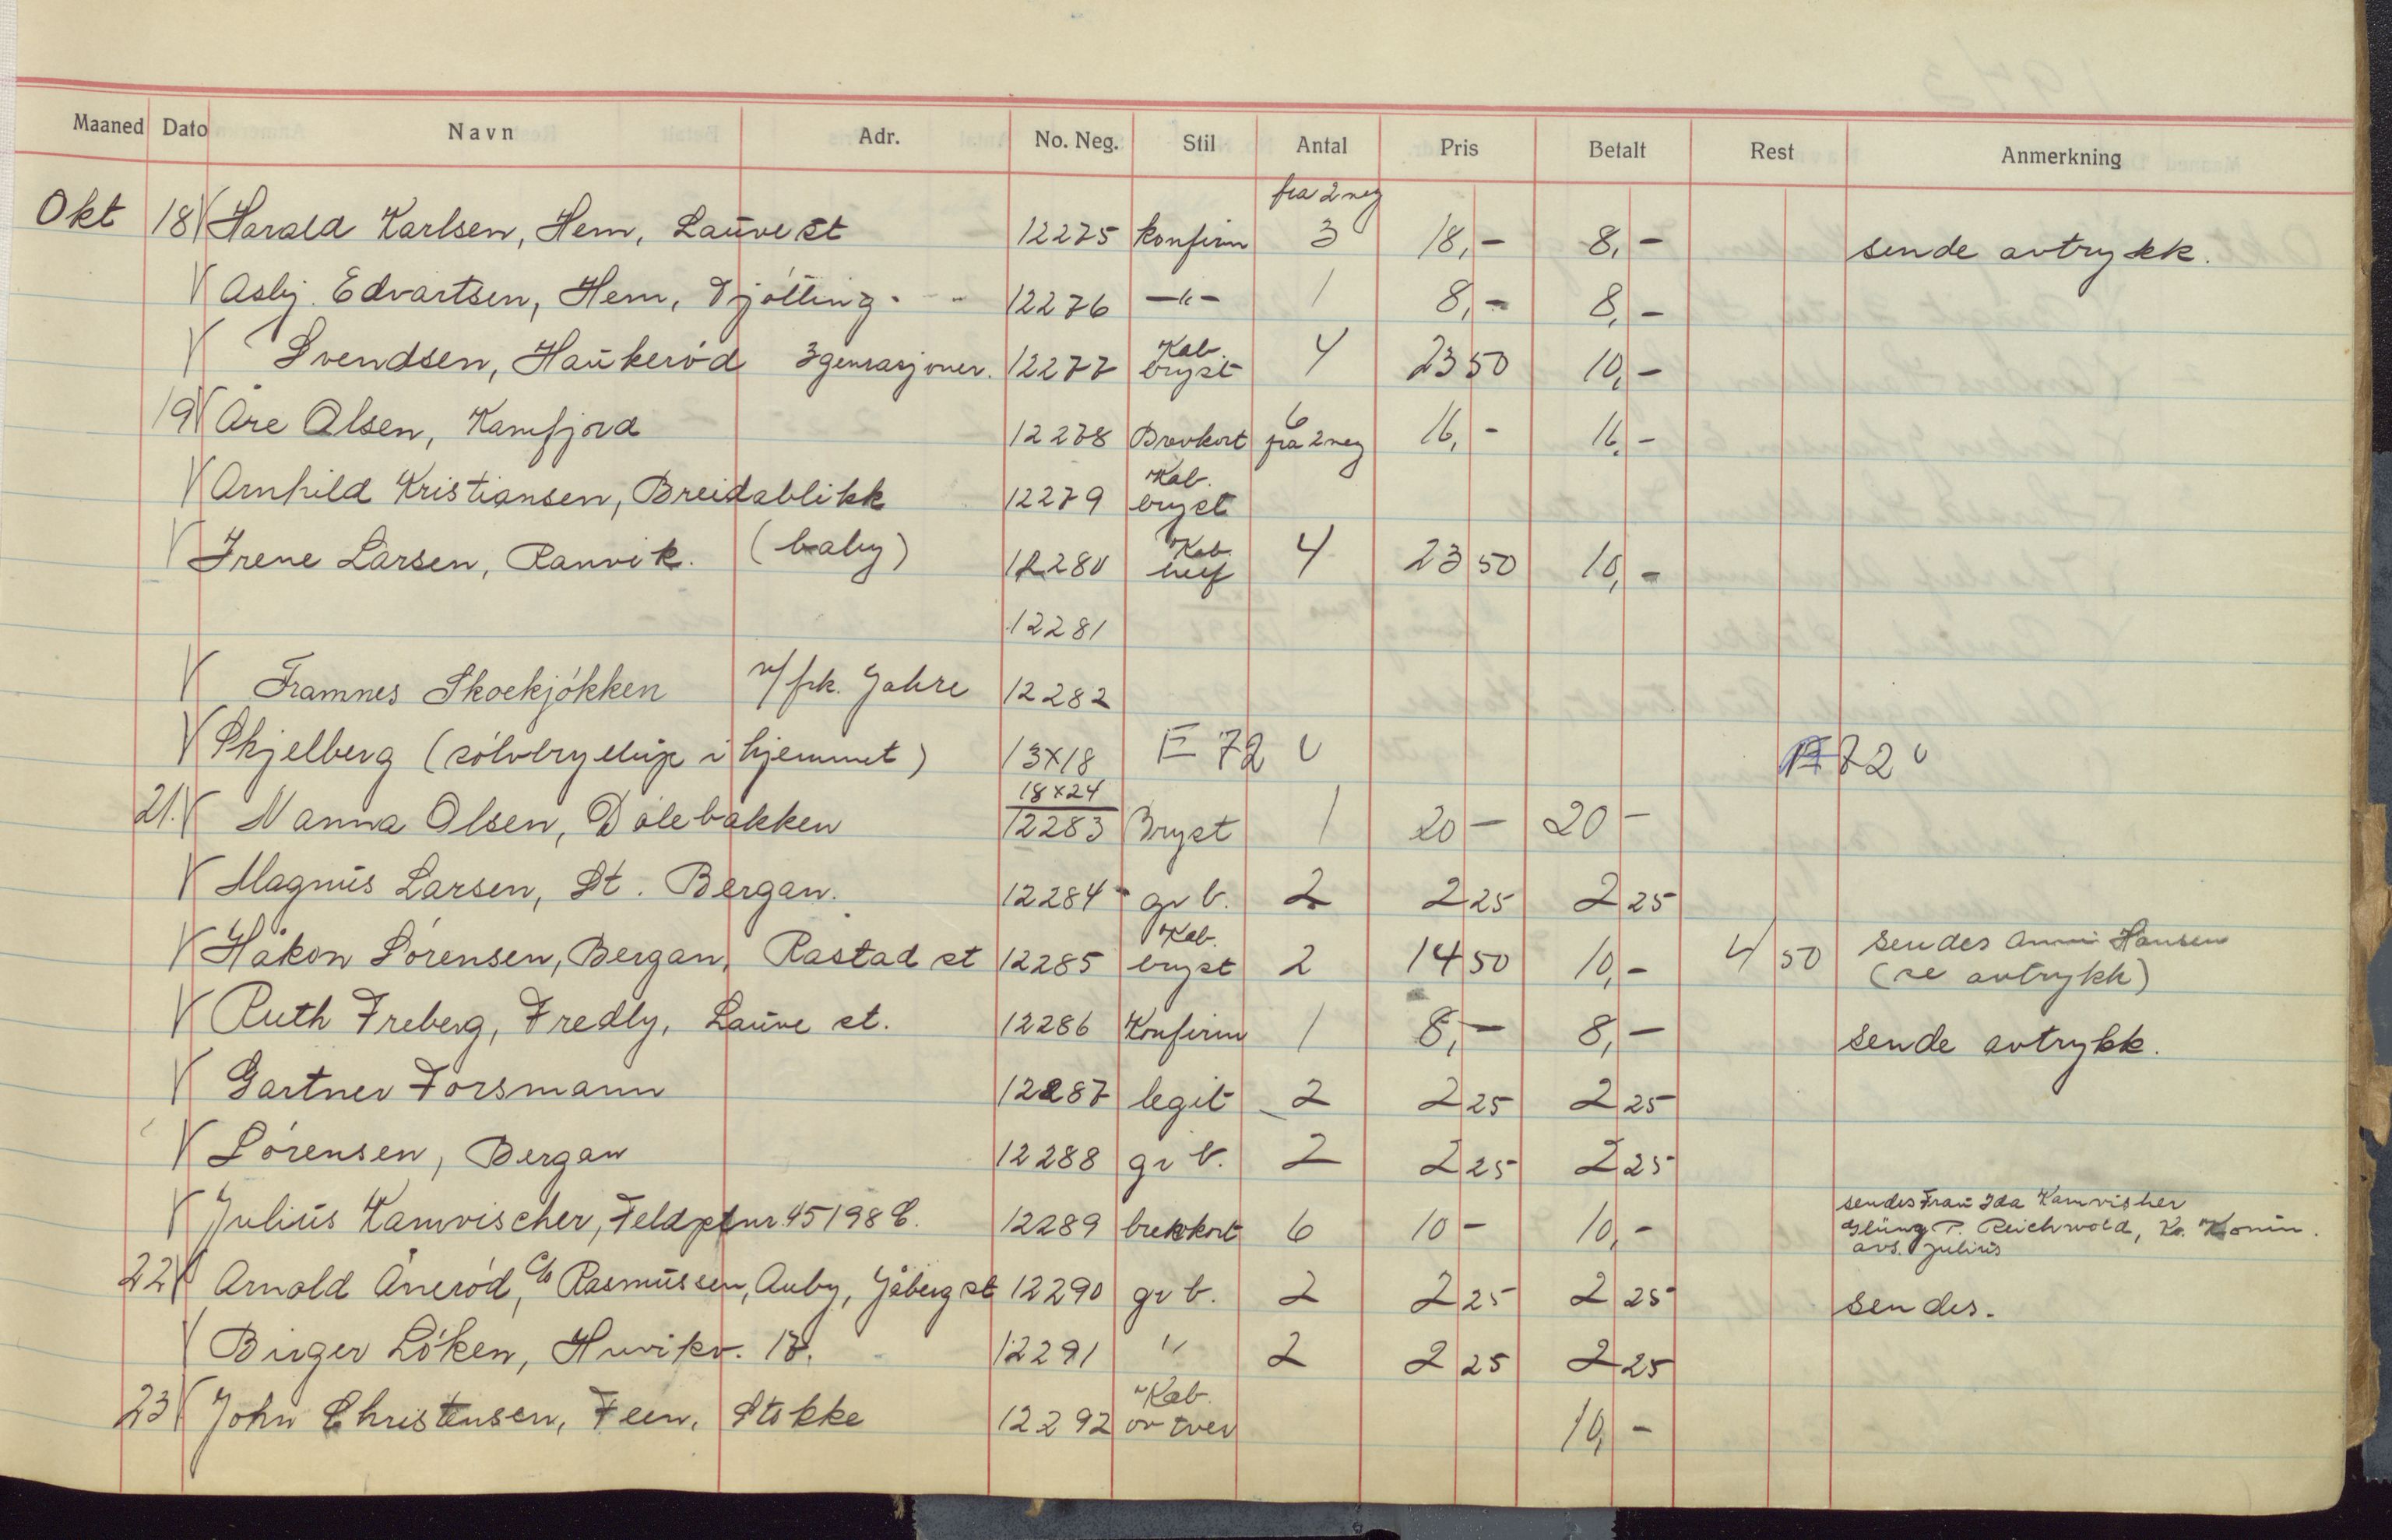 Maaned Dato Navn Adr. No. Neg. Stil Antal Pris Betalt Rest Anmerkning
fra 2 neg
Okt 18 V Harald Karlsen, Hem, Lauve st 12275 konfirm 3 18,- 8,- sende avtrykk.
V Asbj. Edvartsen, Hem, Tjølling - - 12276 -"- 1 8,- 8,-
Kab.
V Svendsen, Haukerød 3 genrasjoner. 12277 bryst 4 23 50 10,-
6
19 V Åre Olsen, Kamfjord 12278 Brevkort fra 2 neg 16,- 16,-
Kab.
V Arnhild Kristiansen, Breidablikk 12279 bryst
Kab.
V Irene Larsen, Ranvik. (baby) 12280 4 23 50 10,-
12281
V Framnes Skoekjøkken v/ frk. Jahre 12282
V Skjelberg (sølvbryllup i hjemmet) 13x18 E 72 U 72 U
18x24
21. V Nanna Olsen, Dølebakken 12283 Bryst 1 20 - 20 -
V Magnus Larsen, St. Bergan. 12284 gr b. 2 2 25 2 25
Kab. sendes Anni Hansen
V Håkon Sørensen, Bergan, Råstad st 12285 bryst 2 14 50 10,- 4 50 (se avtrykk)
V Ruth Freberg, Fredly, Lauve st. 12286 Konfirm 1 8,- 8,- sende avtrykk.
V Gartner Forsmann 12287 legit 2 2 25 2 25
V Sørensen, Bergan 12288 gr b. 2 2 25 2 25
sendes Frau Ida Kamvisher
V Julius Kamvischer, Feldpstnr. 45198 C. 12289 brekkort 6 10 - 10,- Glüng P. Reichwold, Kr. Konin.
avs. Julius
22 V Arnold Ånerød, c/o Rasmussen, Auby, Jåberg st 12290 gr b. 2 2 25 2 25 sendes.
V Birger Løken, Huvikv. 17. 12291 " 2 2 25 2 25
Kab.
23 V John Christensen, Feen, Stokke 12292 ov tver 10,-